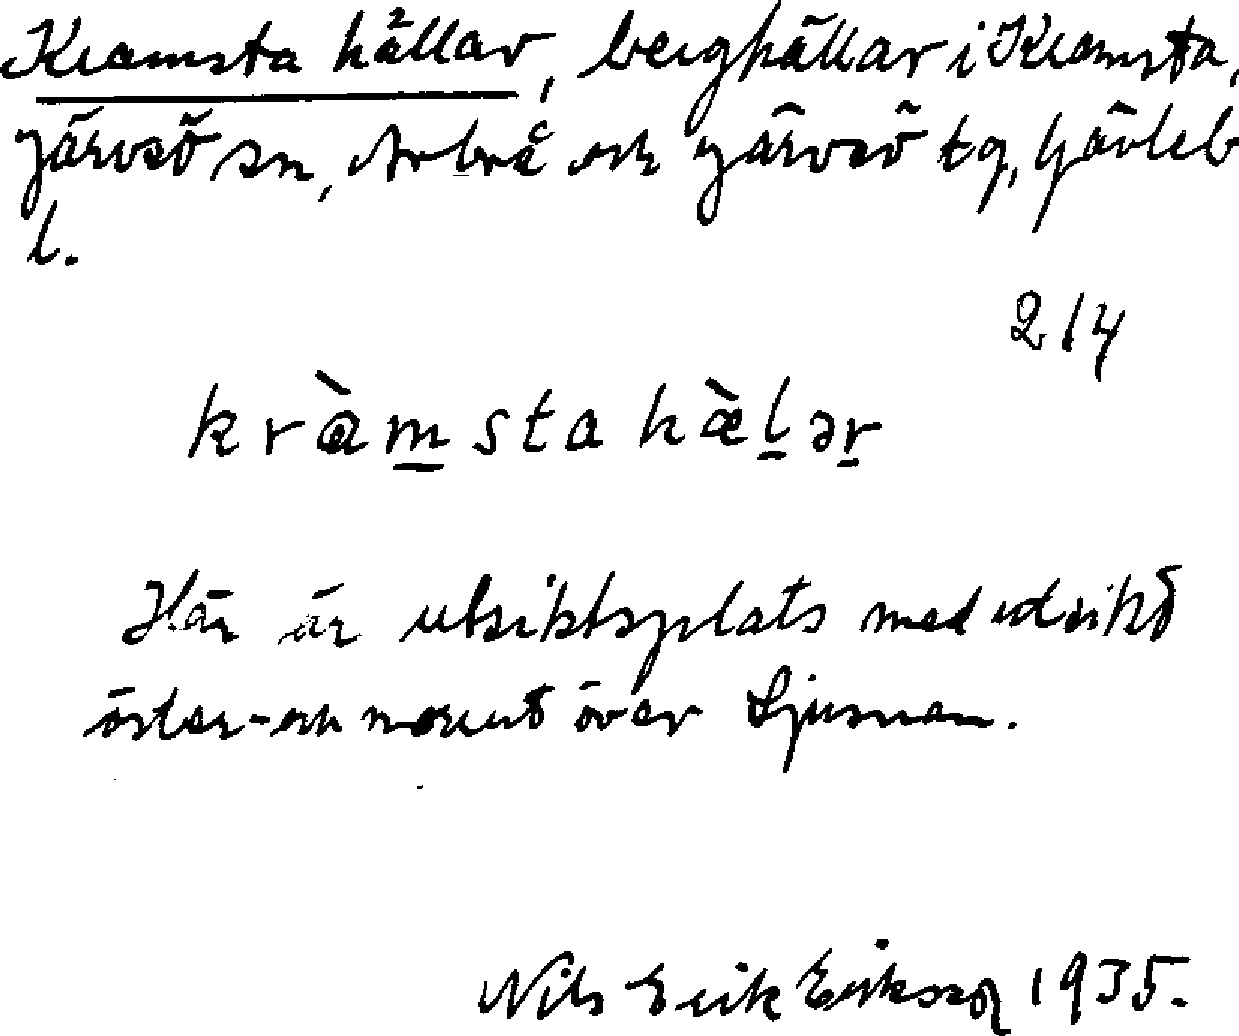 Kramsta hällar, berghällar i Kramsta,
Järvsö sn, Arbrå och Järvsö tg, Gävleb
l.
214
kràmstahæ̀lər
Här är utsiktsplats med utsikt
öster- och norrut över Ljusnan.
Nils Erik Eriksson 1935.